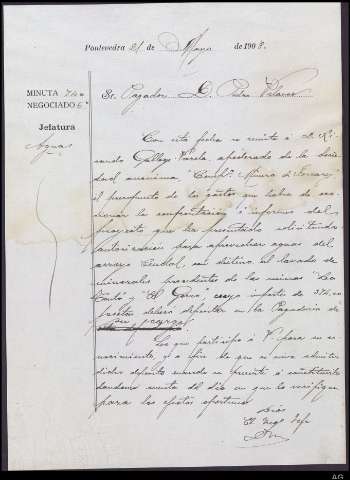 Pontevedra 21 de Mayo de 1908.
MINUTA
NEGOCIADO 6º
Jefatura
Aguas
Sr. Pagador D. Pedro
Con esta fecha se remite á D. Ri-
cardo Gallego Varela, apoderado de la Socie-
dad anónima
el presupuesto de los gastos que habrá de oca-
sionar la confrontación é informe del
proyecto que ha presentado solicitando
autorización para aprovechar aguas del
arroyo con destino al lavado de
minerales procedentes de las minas
y cuyo importe de
pesetas deberá depositar en la Pagaduría de
su cargo.
Lo que participo á V. para su co-
nocimiento y á fin de que se sirva admitir
dicho depósito cuando se presente á constituirlo
dándome cuenta del día en que lo verifique
para los efectos oportunos.
Dios
El Ingº Jefe
AG